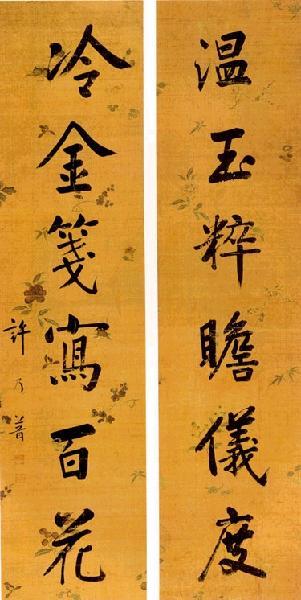 温玉粹瞻儀度
冷金箋寫百花
許乃普